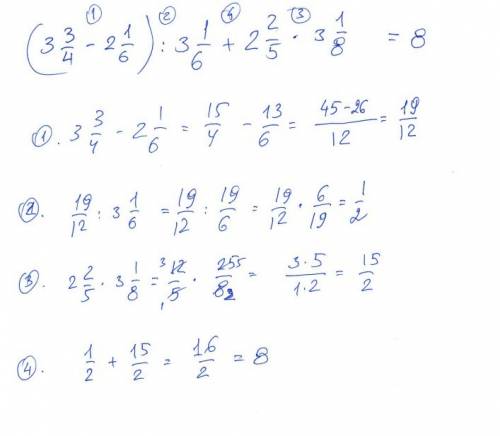 ① ② ④ ③
(3 3/4 - 2 1/6) : 3 1/6 + 2 2/5 · 3 1/8 = 8
①. 3 3/4 - 2 1/6 = 15/4 - 13/6 = 45-26/12 = 19/12
②. 19/12 : 3 1/6 = 19/12 : 19/6 = 19/12 · 6/19 = 1/2
③. 2 2/5 · 3 1/8 = ³12/₁5 · 25⁵/8₂ = 3·5/1·2 = 15/2
④. 1/2 + 15/2 = 16/2 = 8